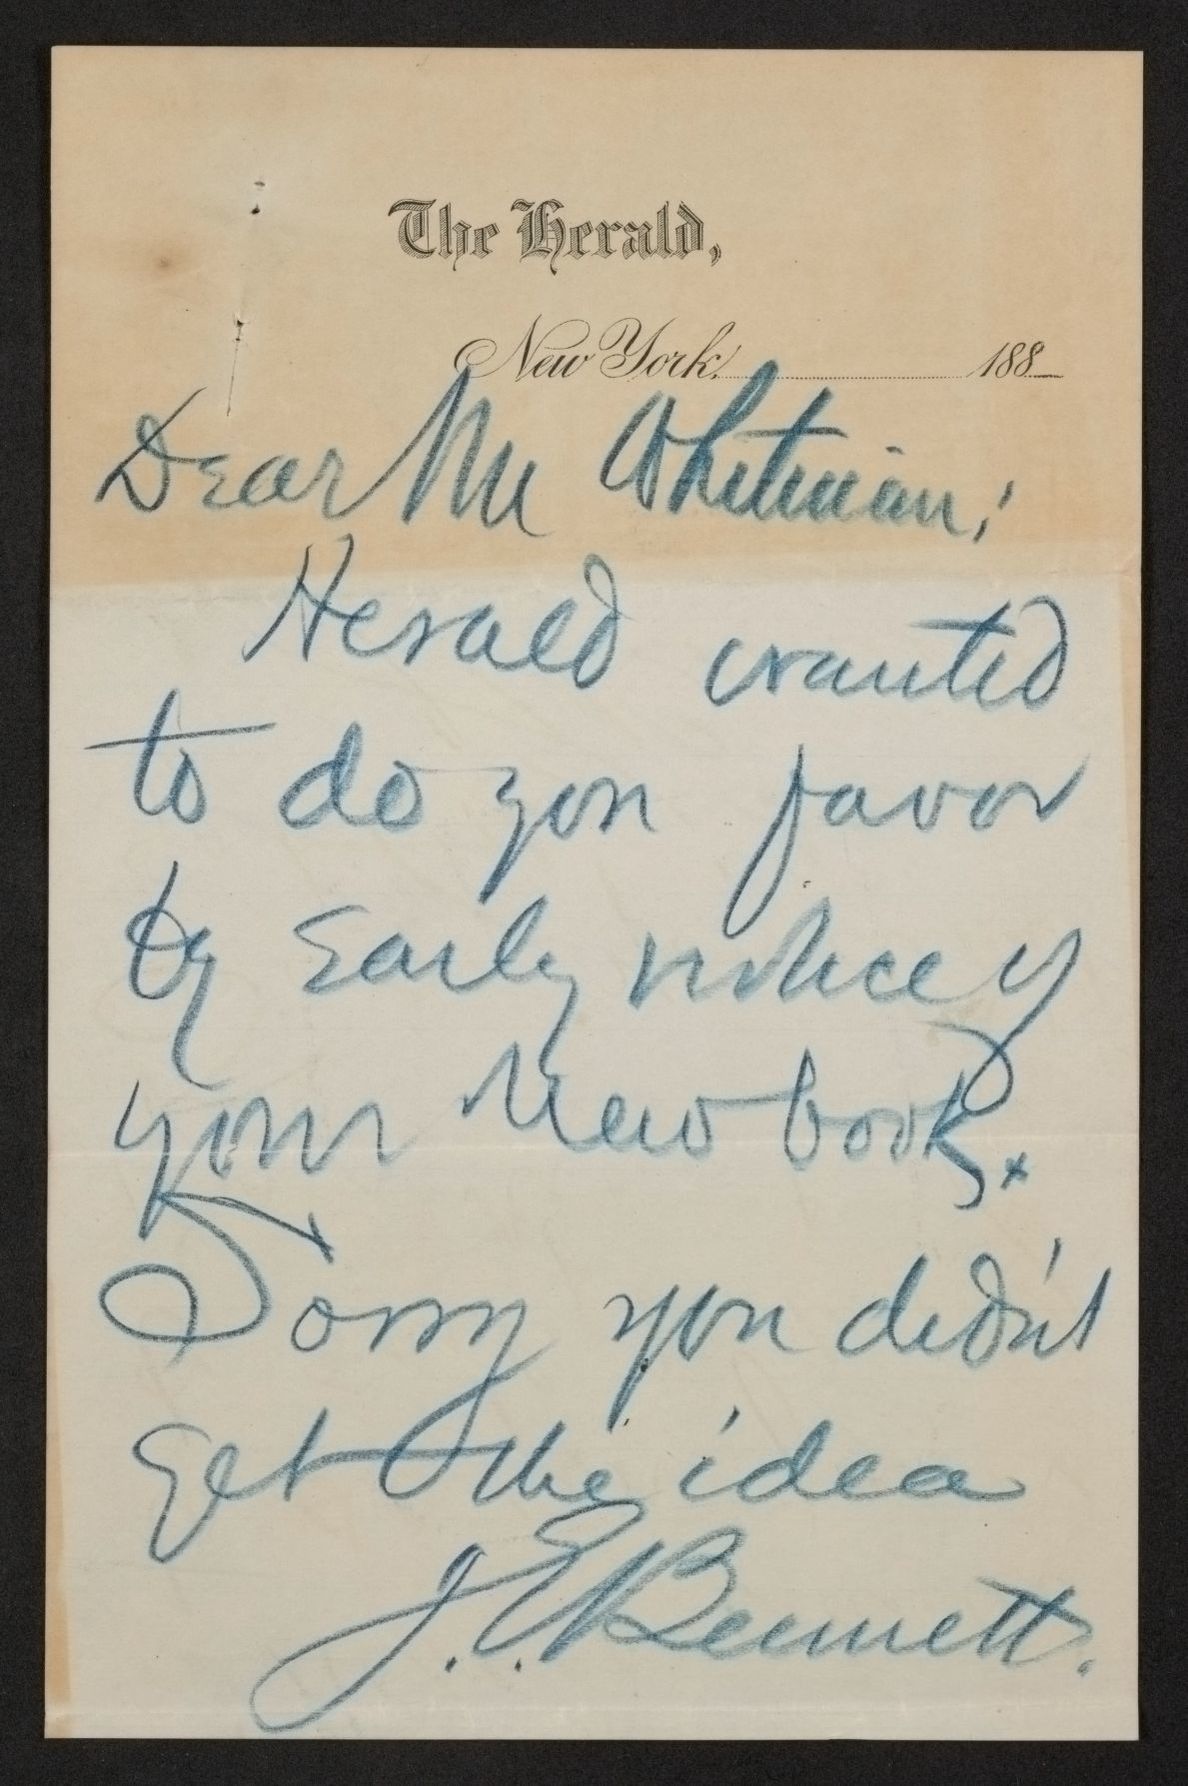 The Herald,
New York, 188
Dear Mr Whitman;
Herald wanted
to do you favor
by Early notice of
your New book. x
Sorry you didn't
get the idea
J. E. Bennett.